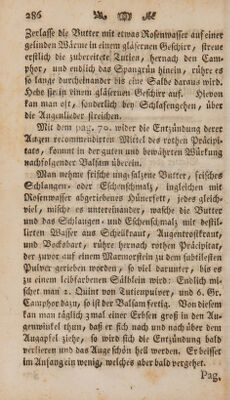 286
Zerlasse die Butter mit etwas Rosenwasser auf einer
gelinden Wärme in einem gläsernen Geschirr, streue
erstlich die zubereitete Tutien, hernach den Cam-
phor, und endlich das Spangrün hinein, rühre es
so lange durcheinander bis eine Salbe daraus wird.
Hebe sie in einem gläsernen Geschirr auf. Hievon
kan man oft, sonderlich bey Schlafengehen, über
die Augenlieder streichen.
Mit dem pag. 70. wider die Entzündung derer
Augen recommendirten Mittel des rothen Präcipi-
tats, kommt in der guten und bewährten Würkung
nachfolgender Balsam überein.
Man nehme frische ungesalzene Butter, frisches
Schlangen- oder Eschenschmalz, ingleichen mit
Rosenwasser abgeriebenes Hünerfett, jedes gleich-
viel, mische es untereinander, wasche die Butter
und das Schlangen- und Eschenschmalz mit destil-
lirten Wasser aus Schellkraut, Augentrostkraut,
und Bocksbart, rühre hernach rothen Präcipitat,
der zuvor auf einem Marmorstein zu dem subtilesten
Pulver gerieben worden, so viel darunter, bis es
zu einem leibfarbenen Sälblein wird: Endlich mi-
schet man 2. Quint von Tutienpulver, und 6. Gr.
Camphor dazu, so ist der Balsam fertig. Von diesem
kan man täglich zmal einer Erbsen groß in den Au-
genwinkel thun, daß er sich nach und nach über dem
Augapfel ziehe, so wird sich die Entzündung bald
verlieren und das Auge schön hell werden. Er beisset
im Anfang ein wenig, welches aber bald vergehet.
Pag.